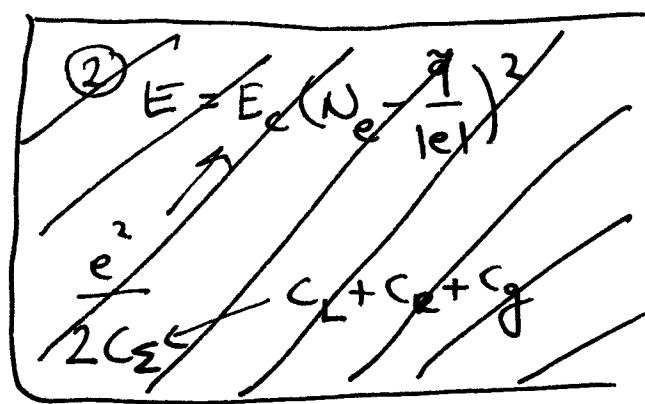 ② E = E_c (N_e - q̃/|e|)²
e²/2C_Σ ← C_L + C_R + C_g